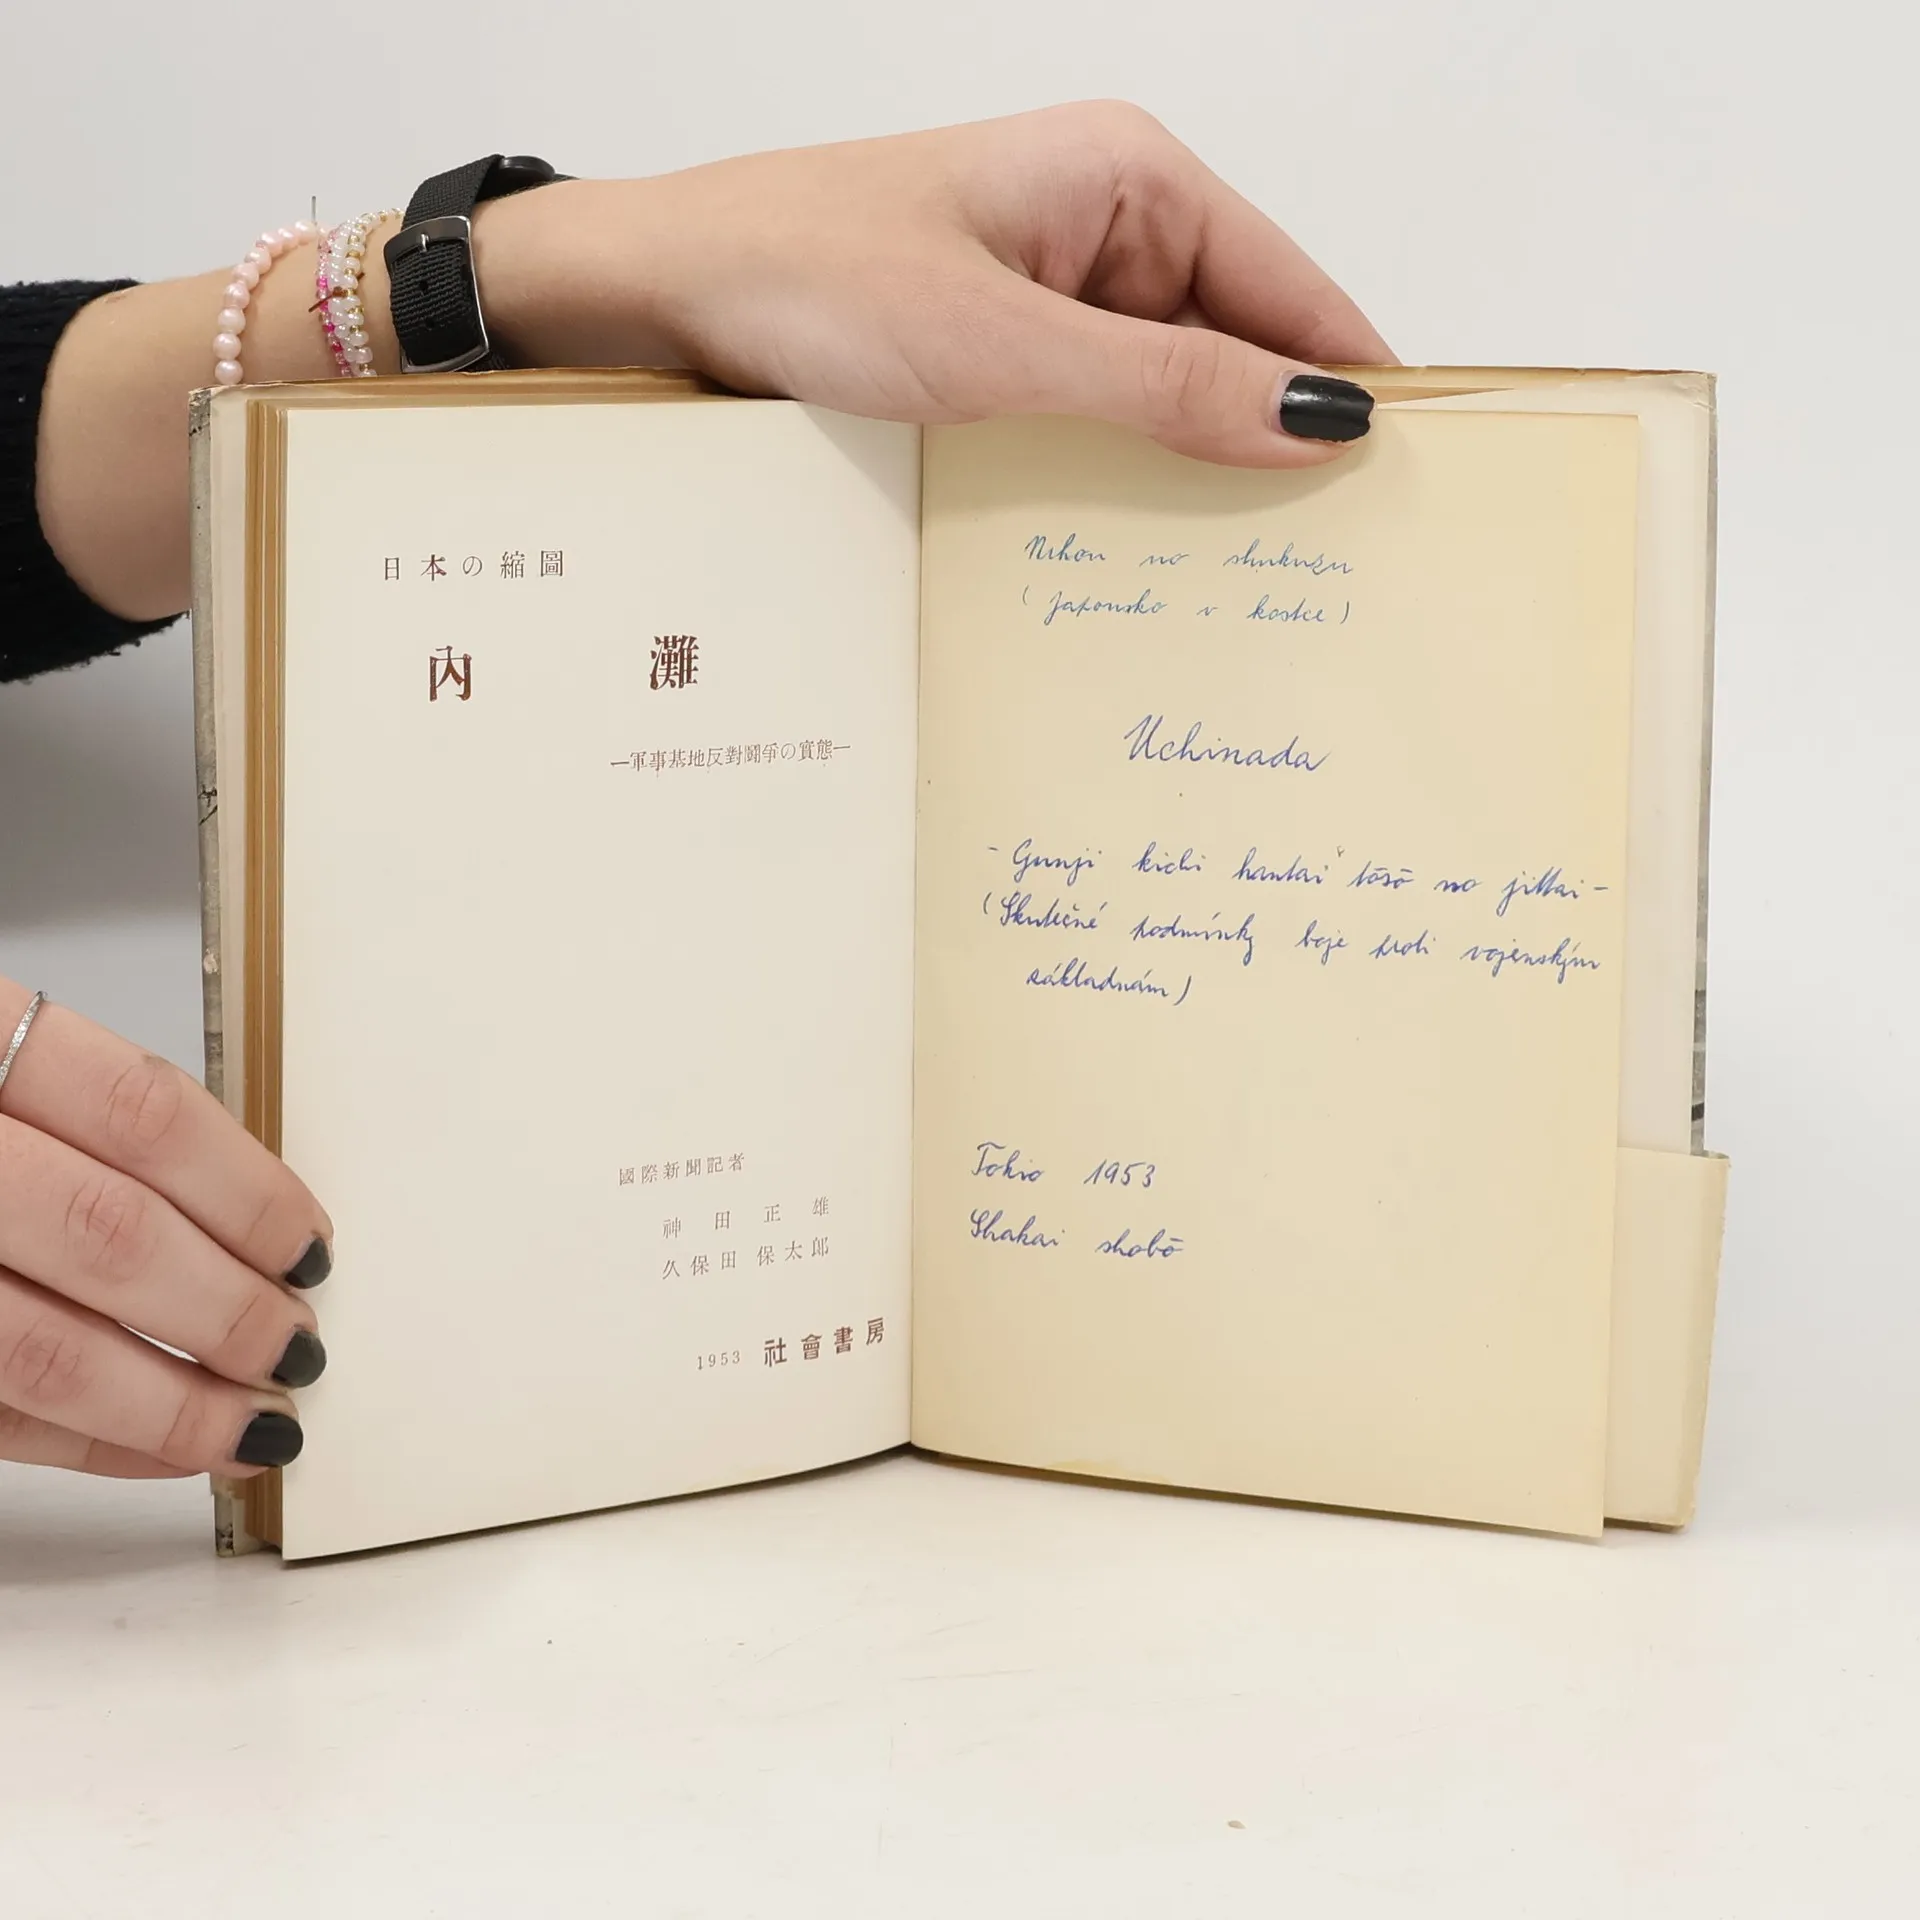 日本の縮圖
內灘
—軍事基地反對鬪爭の實態—
國際新聞記者
神田正雄
久保田保太郎
1953 社會書房
Nihon no shukuzu
(Japonsko v kostce)
Uchinada
- Gunji kichi hantai tōsō no jittai -
(Skutečné podmínky boje proti vojenským
základnám)
Tokio 1953
Shakai shobō